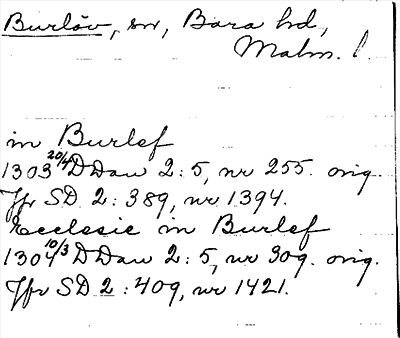 Burlöv, sn, Bara hd,
Malm. l.
in Burlef
1303 20/4 DDan 2:5, nr 255. orig.
Jfr SD 2:389, nr 1394.
Ecclesie in Burlef
1304 10/3 DDan 2:5, nr 309. orig.
Jfr SD 2:409, nr 1421.